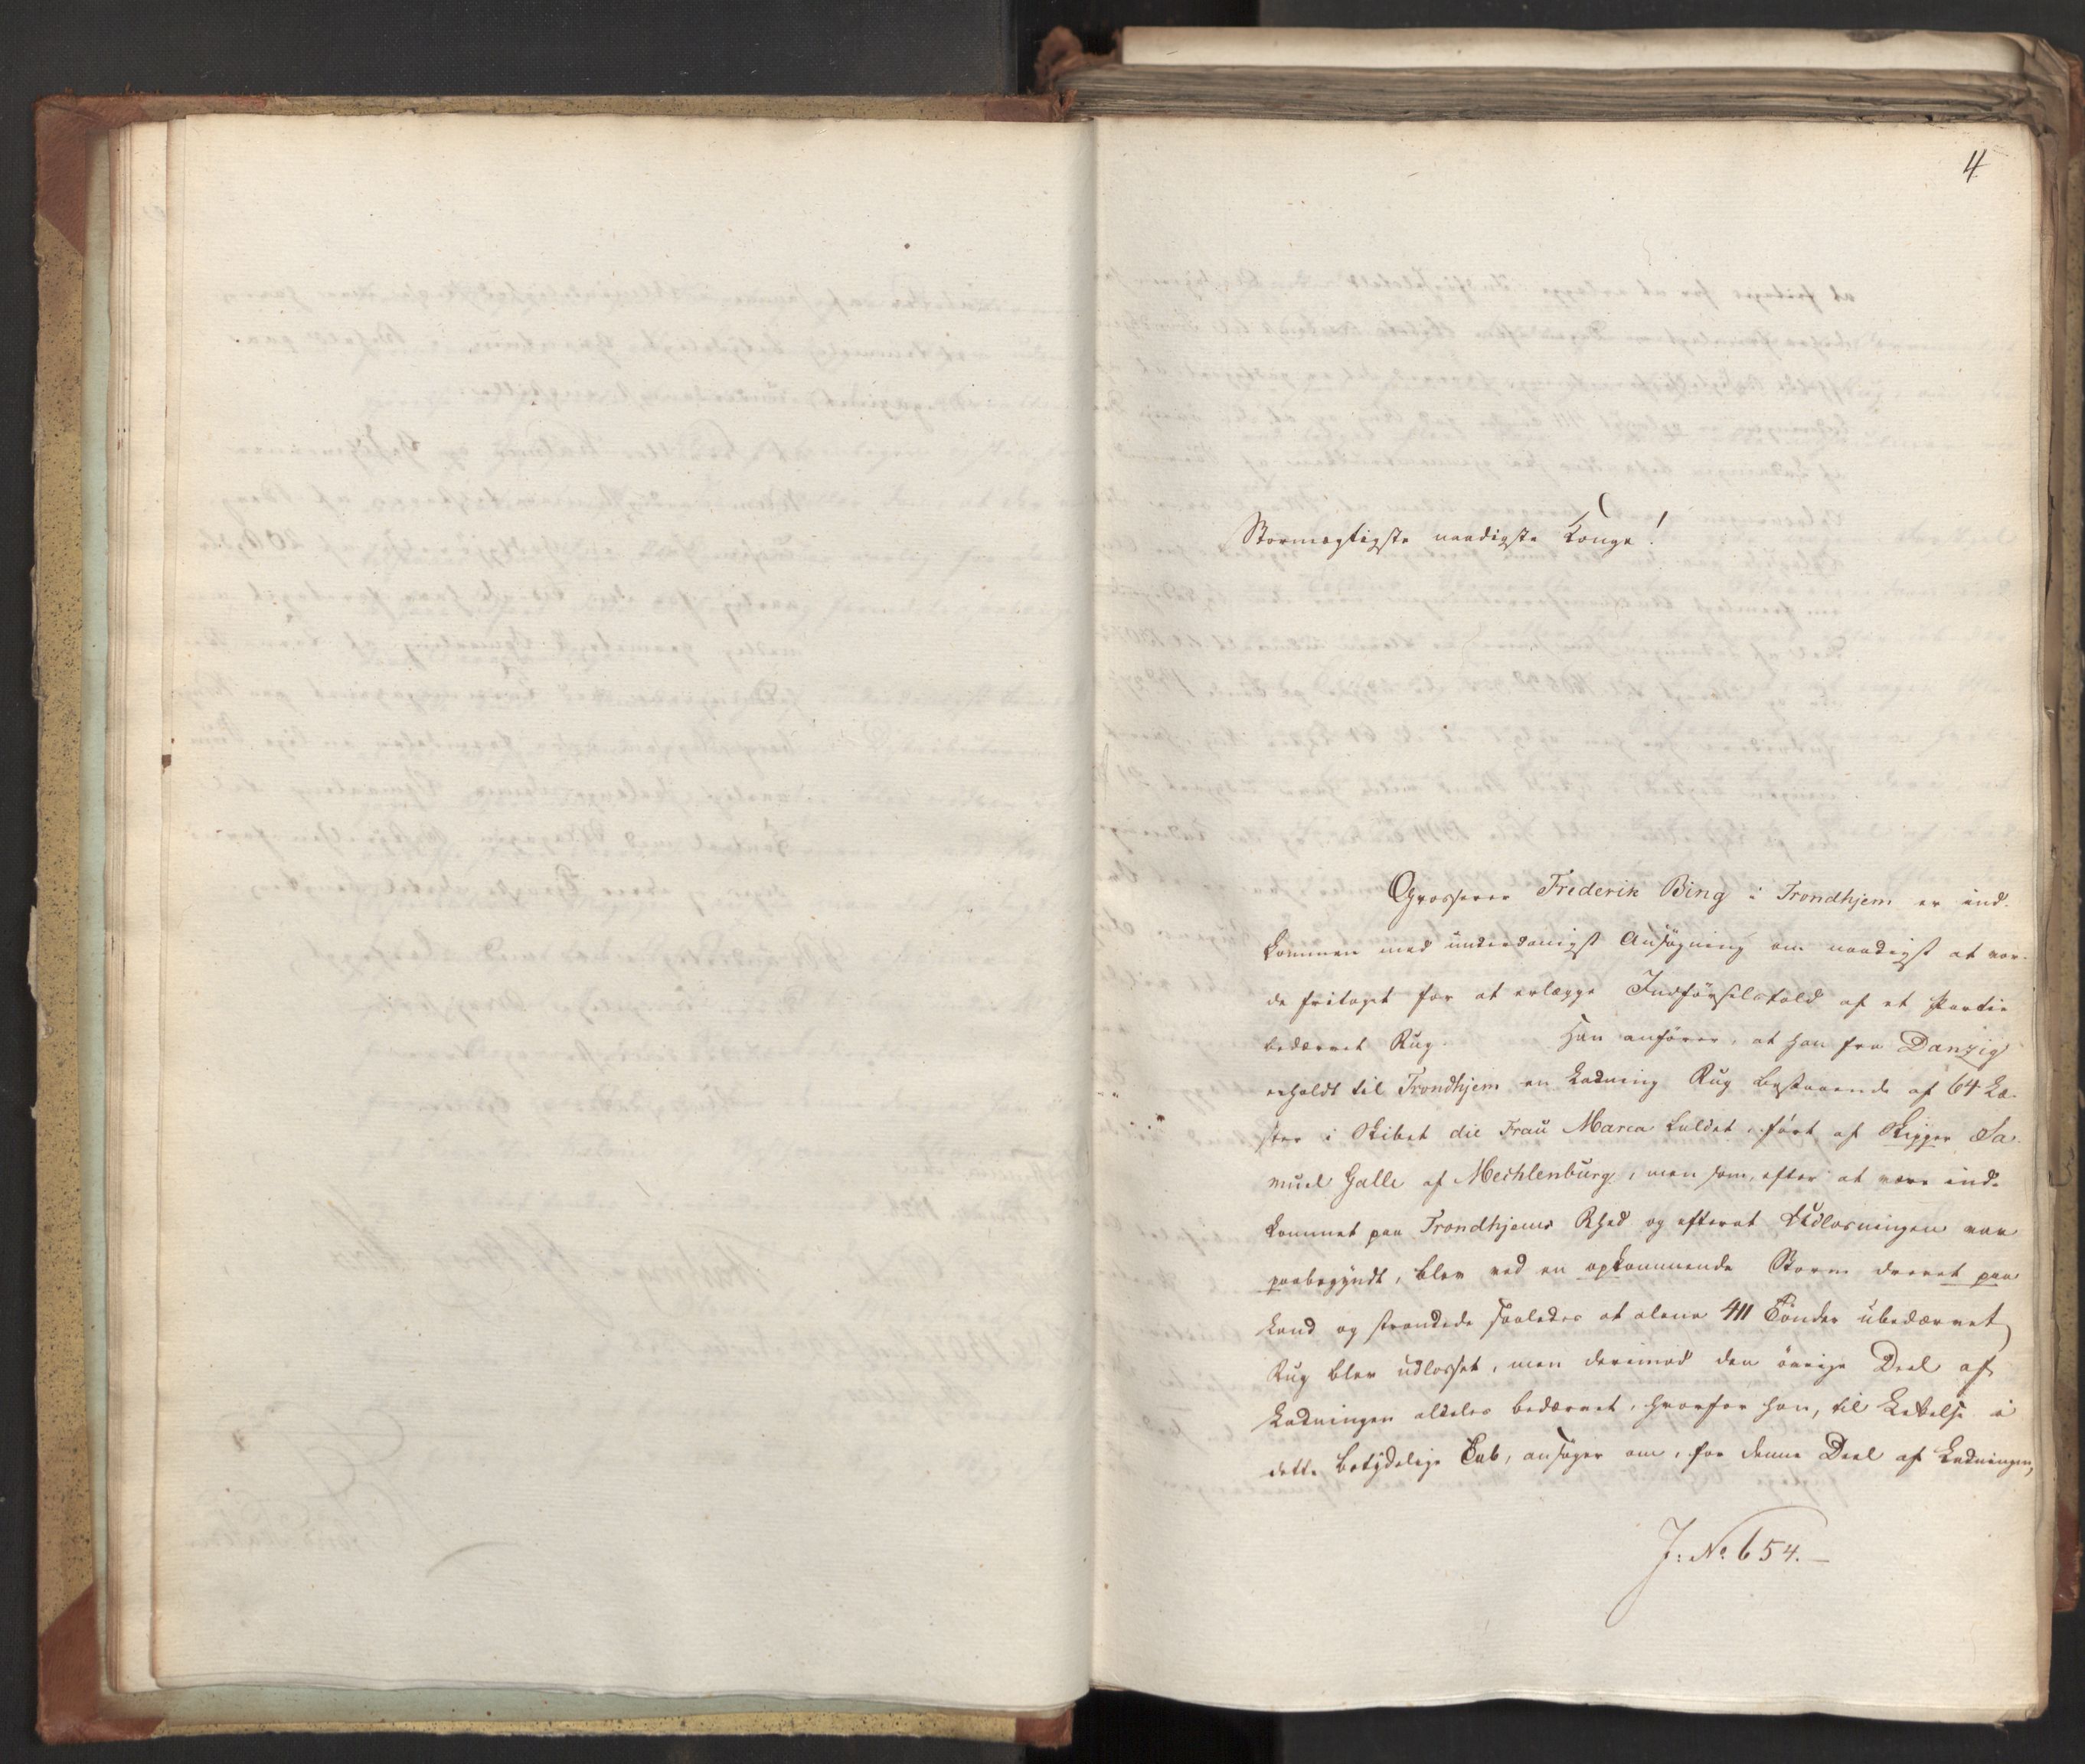 4
Stormægtigste naadigste Konge!
Grosserer Frederik Bing i Trondhjem er ind-
kommen med underdanigst Ansøgning om naadigst at vor-
de fritaget for at erlægge Indførselstold af et Partie
bedærvet Rug. Han anfører, at han fra Danzig
erholdt til Trondhjem en Ladning Rug bestaaende af 64 Læ-
ster i Skibet die Frau Maria kaldet, ført af Skipper Sa-
muel Galle af Mechlenburg, men som, efter at være ind-
kommet paa Trondhjems Rhed og efterat Udlosningen var
paabegyndt, blev ved en opkommende Storm drevet paa
Land og strandede saaledes at alene 411 Tønder ubedærvet
Rug blev udlosset, men derimod den øvrige Deel af
Ladningen aldeles bedærvet, hvorfor han, til Lettelse i
dette betydelige Tab, ansøger om, for denne Deel af Ladningen,
J: No 654.